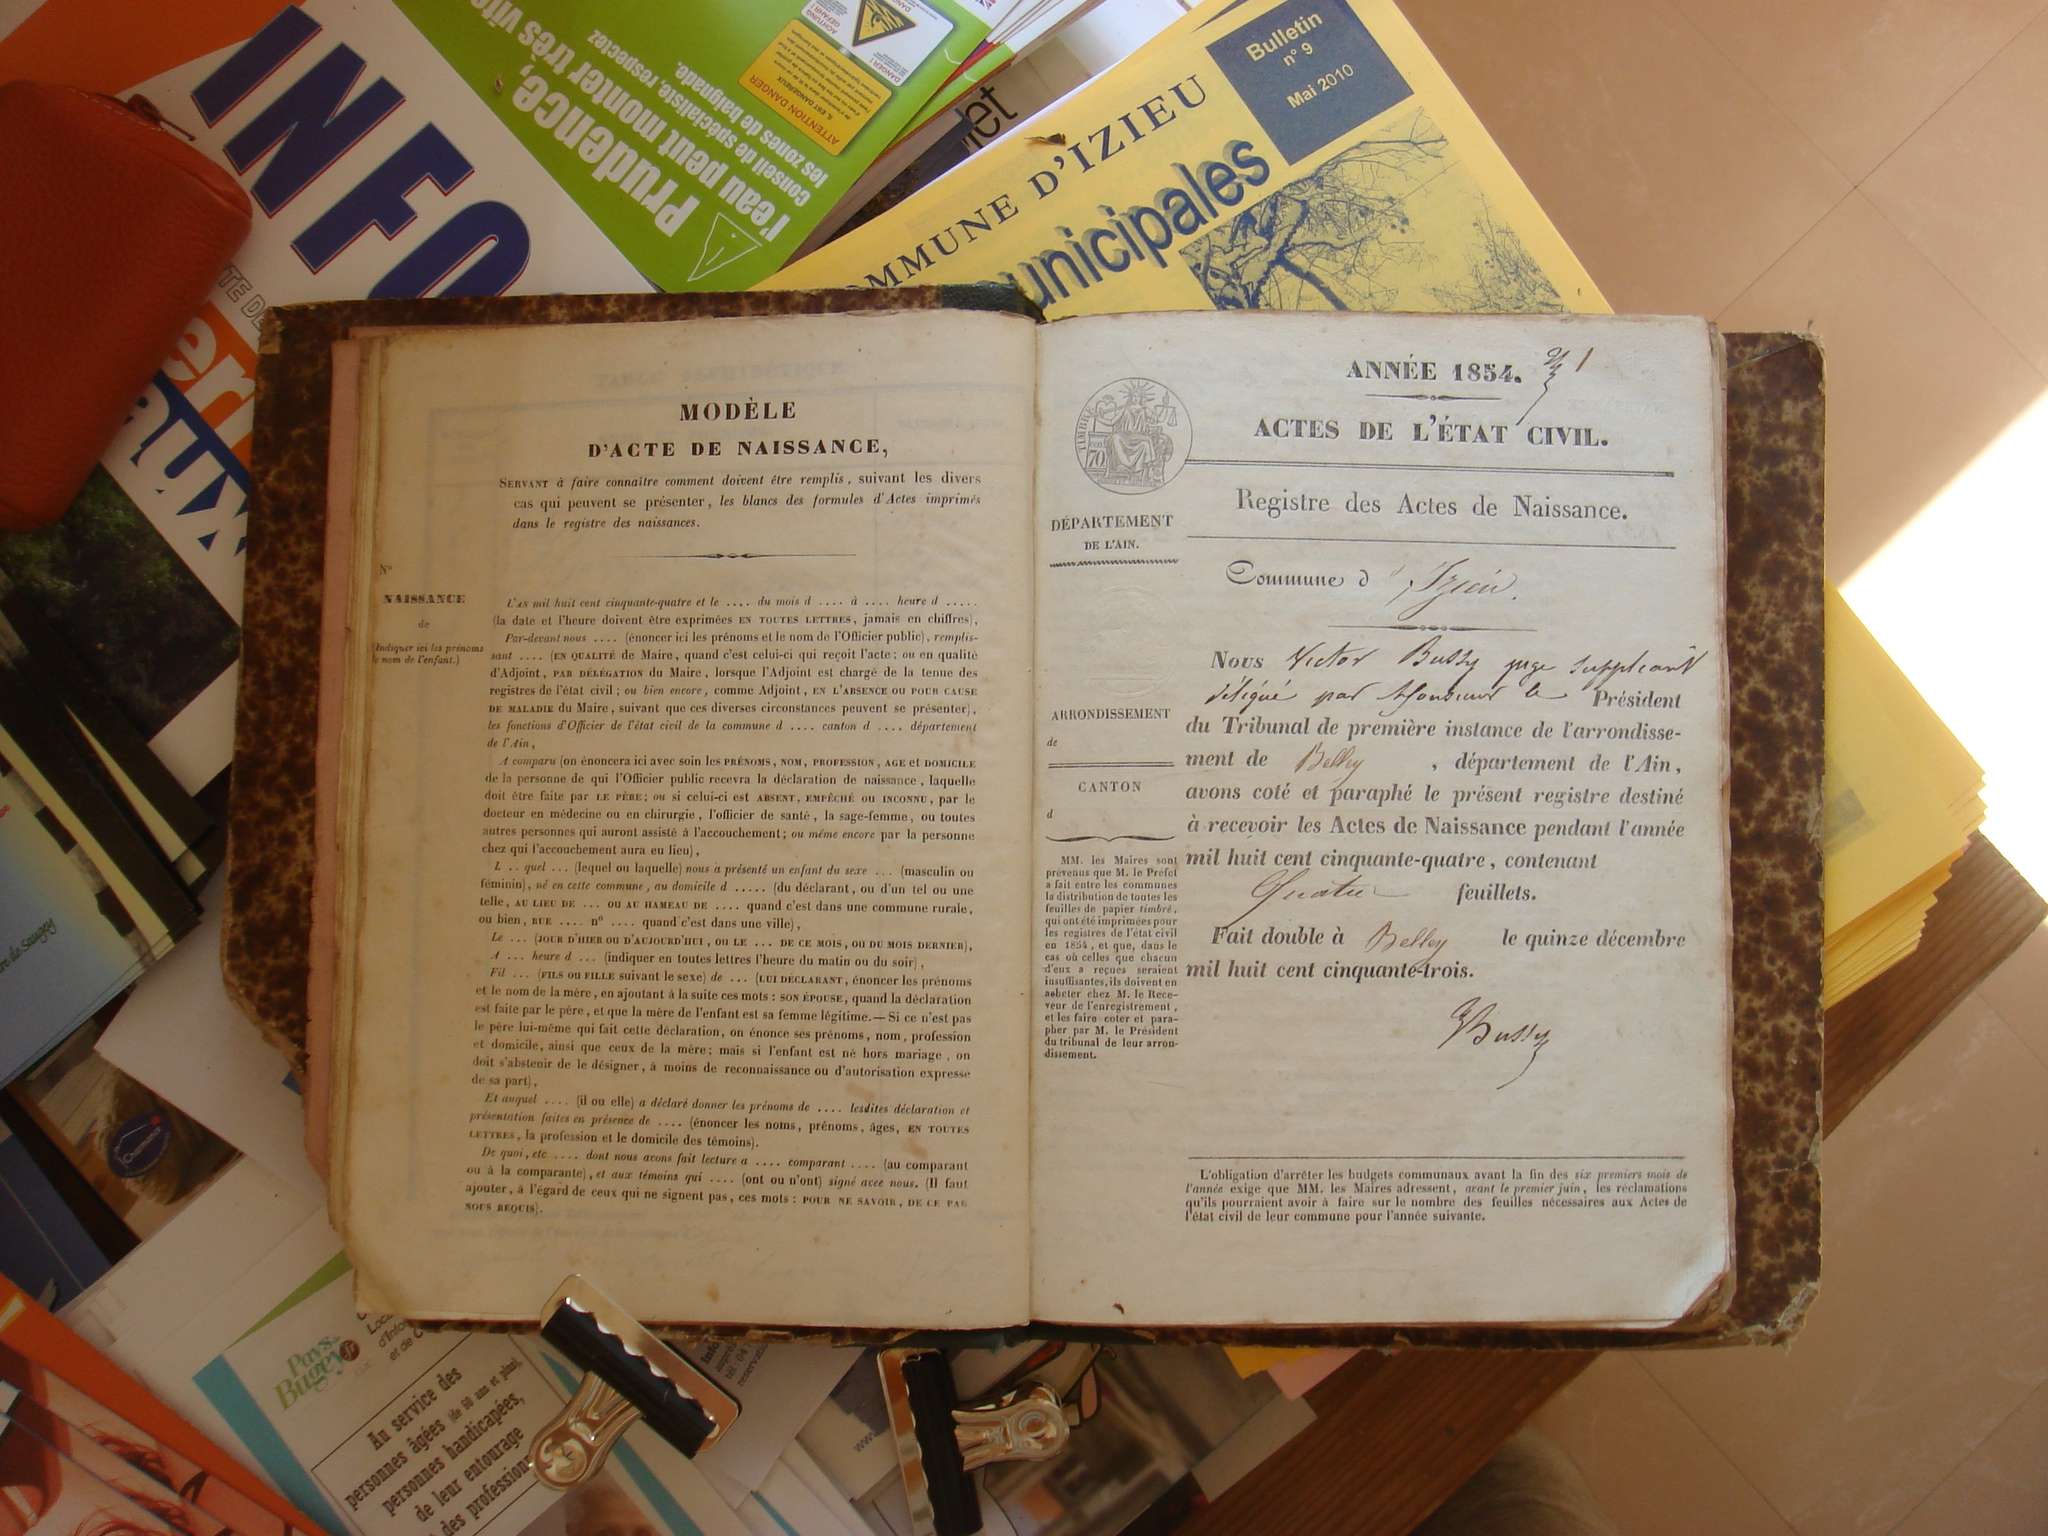 INFO
Prudence,
l'eau peut monter très vite
conseil de spécialiste, respectez
les zones de baignade.
ATTENTION DANGER
COMMUNE D'IZIEU
unicipales
Bulletin
n° 9
Mai 2010
MODÈLE
D'ACTE DE NAISSANCE,
SERVANT à faire connaître comment doivent être remplis, suivant les divers
cas qui peuvent se présenter, les blancs des formules d'Actes imprimés
dans le registre des naissances.
N°
NAISSANCE
de
(Indiquer ici les prénoms
le nom de l'enfant.)
L'AN mil huit cent cinquante-quatre et le .... du mois d .... à .... heure d .....
(la date et l'heure doivent être exprimées EN TOUTES LETTRES, jamais en chiffres),
Par-devant nous .... (énoncer ici les prénoms et le nom de l'Officier public), remplis-
sant .... (EN QUALITÉ de Maire, quand c'est celui-ci qui reçoit l'acte; ou en qualité
d'Adjoint, PAR DÉLÉGATION du Maire, lorsque l'Adjoint est chargé de la tenue des
registres de l'état civil; ou bien encore, comme Adjoint, EN L'ABSENCE OU POUR CAUSE
DE MALADIE du Maire, suivant que ces diverses circonstances peuvent se présenter),
les fonctions d'Officier de l'état civil de la commune d .... canton d .... département
de l'Ain,
A comparu (on énoncera ici avec soin les PRÉNOMS, NOM, PROFESSION, AGE et DOMICILE
de la personne de qui l'Officier public recevra la déclaration de naissance, laquelle
doit être faite par LE PÈRE; ou si celui-ci est ABSENT, EMPÊCHÉ OU INCONNU, par le
docteur en médecine ou en chirurgie, l'officier de santé, la sage-femme, ou toutes
autres personnes qui auront assisté à l'accouchement; ou même encore par la personne
chez qui l'accouchement aura eu lieu),
L .. quel ... (lequel ou laquelle) nous a présenté un enfant du sexe ... (masculin ou
féminin), né en cette commune, au domicile d ..... (du déclarant, ou d'un tel ou une
telle, AU LIEU DE ... OU AU HAMEAU DE .... quand c'est dans une commune rurale,
ou bien, RUE .... n° .... quand c'est dans une ville),
Le ... (JOUR D'HIER OU D'AUJOURD'HUI, OU LE ... DE CE MOIS, OU DU MOIS DERNIER),
A ... heure d ... (indiquer en toutes lettres l'heure du matin ou du soir),
Fil ... (FILS OU FILLE suivant le sexe) de ... (LUI DÉCLARANT, énoncer les prénoms
et le nom de la mère, en ajoutant à la suite ces mots : SON ÉPOUSE, quand la déclaration
est faite par le père, et que la mère de l'enfant est sa femme légitime.—Si ce n'est pas
le père lui-même qui fait cette déclaration, on énonce ses prénoms, nom, profession
et domicile, ainsi que ceux de la mère; mais si l'enfant est né hors mariage, on
doit s'abstenir de le désigner, à moins de reconnaissance ou d'autorisation expresse
de sa part),
Et auquel .... (il ou elle) a déclaré donner les prénoms de .... lesdites déclaration et
présentation faites en présence de .... (énoncer les noms, prénoms, âges, EN TOUTES
LETTRES, la profession et le domicile des témoins).
De quoi, etc .... dont nous avons fait lecture a .... comparant .... (au comparant
ou à la comparante), et aux témoins qui .... (ont ou n'ont) signé avec nous. (Il faut
ajouter, à l'égard de ceux qui ne signent pas, ces mots : POUR NE SAVOIR, DE CE PAR
NOUS REQUIS).
ANNÉE 1854.
1
ACTES DE L'ÉTAT CIVIL.
TIMBRE
70
Registre des Actes de Naissance.
DÉPARTEMENT
DE L'AIN.
Commune d'Izieu.
ARRONDISSEMENT
de
CANTON
d
MM. les Maires sont
prévenus que M. le Préfet
a fait entre les communes
la distribution de toutes les
feuilles de papier timbré,
qui ont été imprimées pour
les registres de l'état civil
en 1854, et que, dans le
cas où celles que chacun
d'eux a reçues seraient
insuffisantes, ils doivent en
acheter chez M. le Rece-
veur de l'enregistrement,
et les faire coter et para-
pher par M. le Président
du tribunal de leur arron-
dissement.
Nous Victor Bussy juge suppléant
délégué par Monsieur le Président
du Tribunal de première instance de l'arrondisse-
ment de Belley, département de l'Ain,
avons coté et paraphé le présent registre destiné
à recevoir les Actes de Naissance pendant l'année
mil huit cent cinquante-quatre, contenant
Quatre feuillets.
Fait double à Belley le quinze décembre
mil huit cent cinquante-trois.
VBussy
L'obligation d'arrêter les budgets communaux avant la fin des six premiers mois de
l'année exige que MM. les Maires adressent, avant le premier juin, les réclamations
qu'ils pourraient avoir à faire sur le nombre des feuilles nécessaires aux Actes de
l'état civil de leur commune pour l'année suivante.
Pays
Bugey
Au service des
personnes âgées (de 60 ans et plus),
personnes handicapées,
de leur entourage